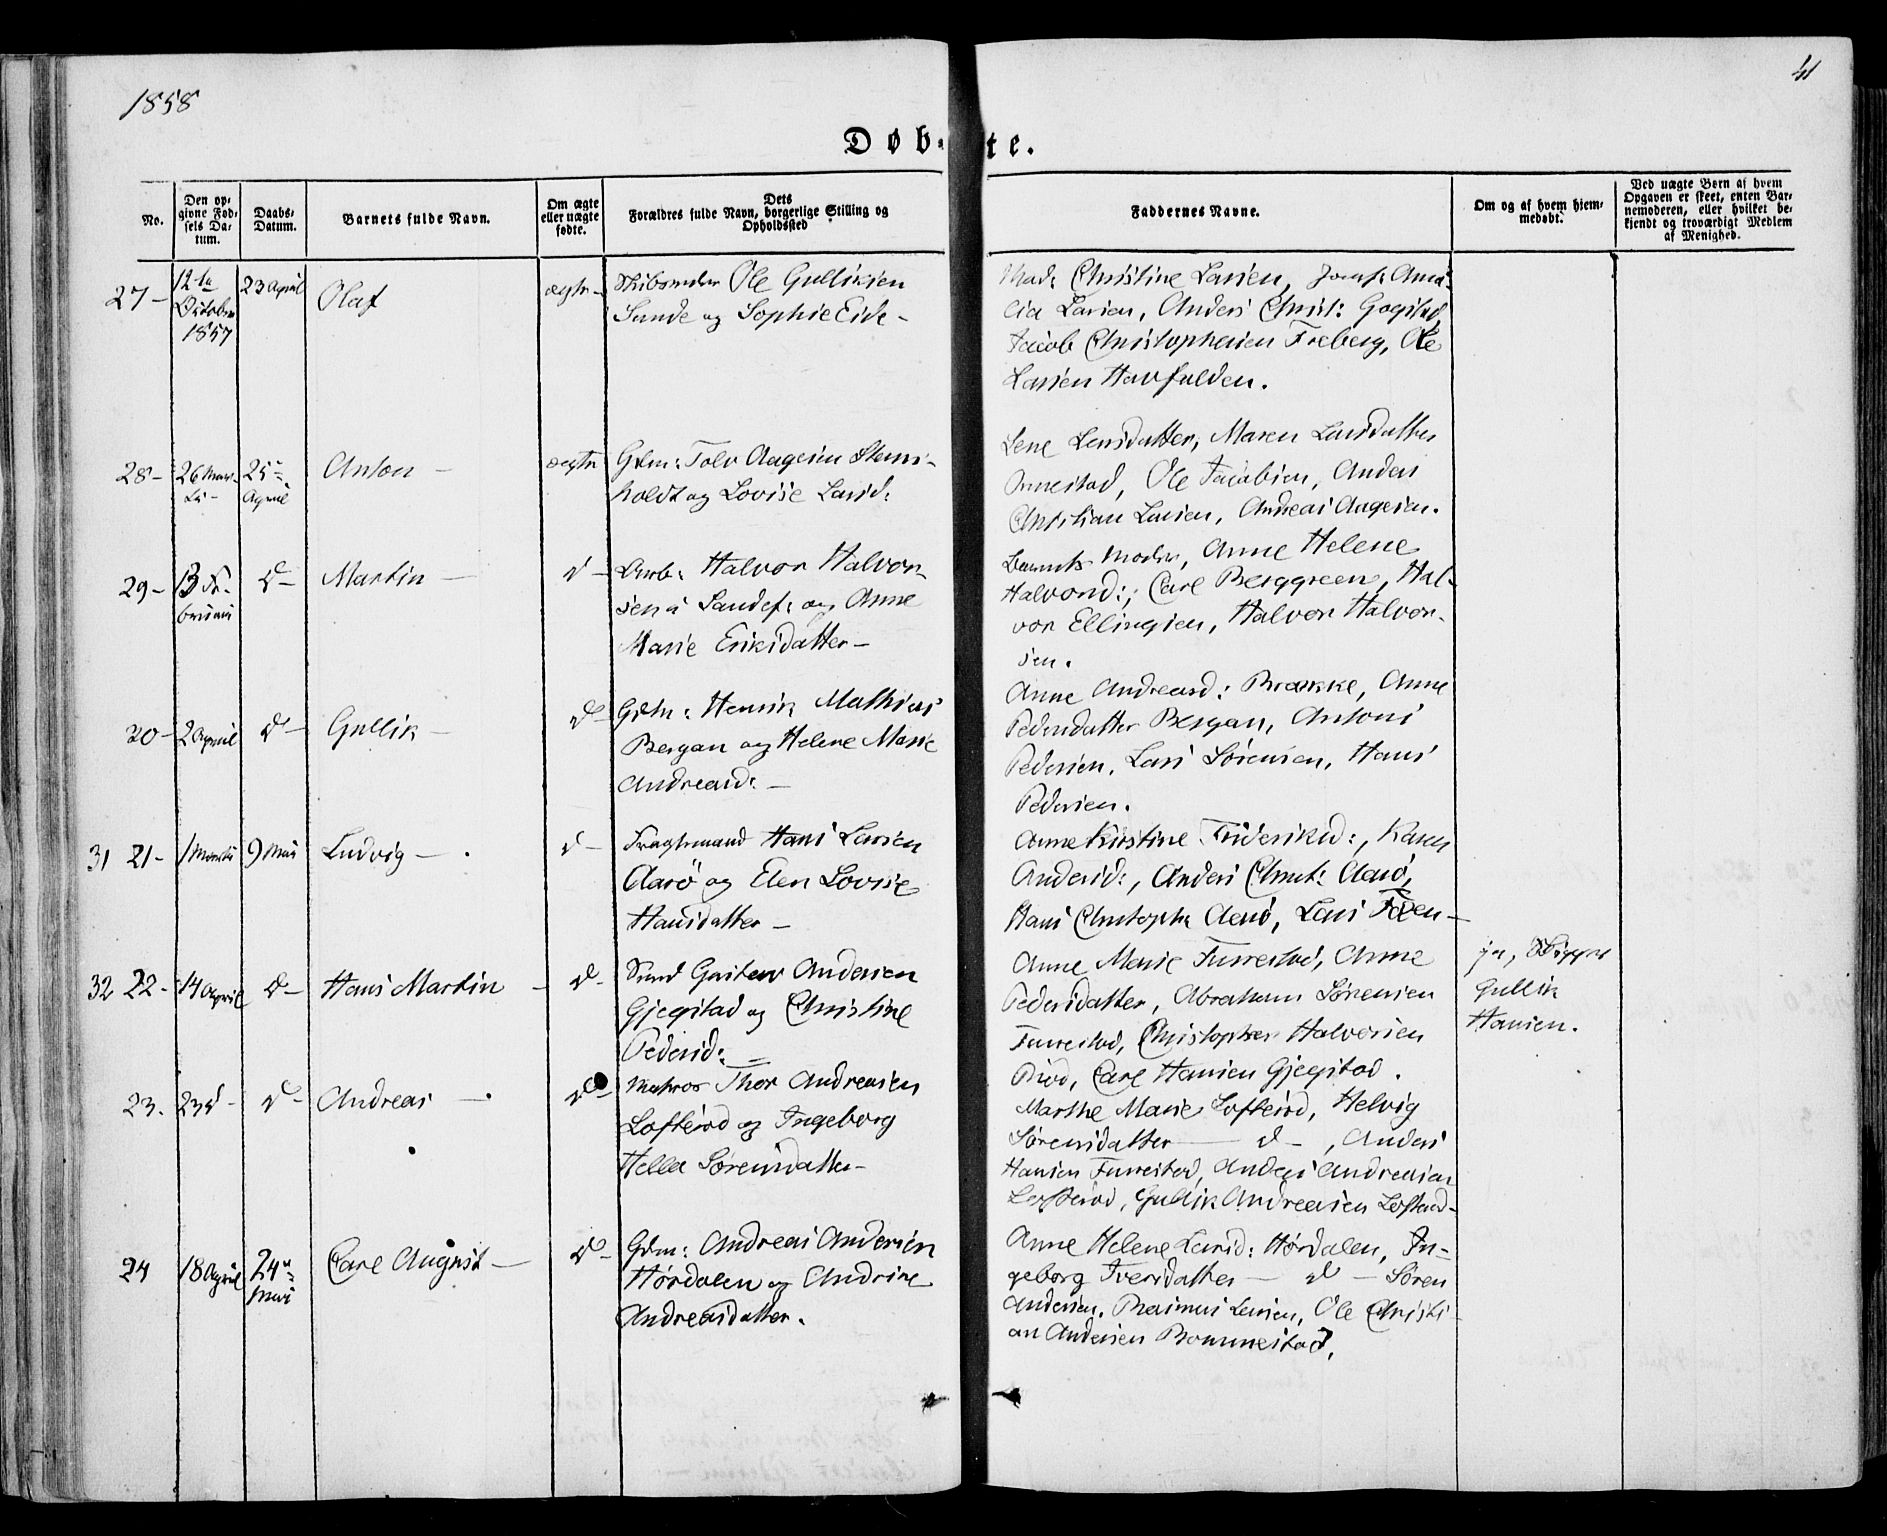 1858
41
Døb-te.
No.
Den opgivne Fødsels Datum.
Daabs-Datum.
Barnets fulde Navn.
Om ægte eller uægte fødte.
Dets Forældres fulde Navn, borgerlige Stilling og Opholdssted
Faddernes Navne.
Om og af hvem hjemmedøbt.
Ved uægte Børn af hvem Opgaven er skeet, enten Barnemoderen, eller hvilket bekjendt og troværdigt Medlem af Menighed.
27-
12-te
October
1857
23 April
Olaf
ægte-
Skibsreder Ole Gulliksen
Sunde og Sophie Eide-
Mad: Christine Larsen, Jomf: Ama-
lia Larsen, Anders Christ: Gogstad
Jacob Christophersen Freberg, Ole
Larsen Havfulden.
28-
26 Mar-
ts-
25
April
Anton -
ægte
Gdm: Tolv Aagesen Stens-
holdt og Lovise Larsd:
Lene Larsdatter, Maren Larsdatter
Onnestad, Ole Jacobsen, Anders
Christian Larsen, Andreas Aagesen.
29-
13 Fe-
bruari
d-
Martin -
d-
Arb: Halvor Halvor-
sen i Sandef: og Anne
Marie Eriksdatter-
Barnets Moder, Anne Helene
Halvorsd:, Carl Berggreen, Hal-
vor Ellingsen, Halvor Halvor-
sen.
20-
2 April
d-
Gullik -
d-
Gdm: Henrik Mathias
Bergan og Helene Marie
Andreasd: -
Anne Andreasd: Brække, Anne
Pedersdatter Bergan, Antoni
Pedersen, Lars Sörensen, Hans
Pedersen.
31 21-
1 Marts
9 Mai
Ludvig - .
d-
Fragtemand Hans Larsen
Aarö og Elen Lovise
Hansdatter -
Anne Kirstine Frideriksd:, Karen
Andersd:, Anders Christ: Aarö,
Hans Christoph: Aarö, Lars Föen-
32 22-
14 April
d-
Hans Martin -
d-
Gustav Andersen
Gjegstad og Christine
Pedersd: -
Anne Marie Furrestad, Anne
Pedersdatter, Abraham Sörensen
Furrestad, Christopher Halvorsen
Riöd, Carl Hansen Gjegstad.
ja,
Gullik
Hansen.
23.
23 d-
d-
Andreas - .
d-
Matros Thor Andreasen
Lofteröd og Ingeborg
Hella Sörensdatter-
Marthe Marie Lofteröd, Helvig
Sörensdatter - d-, Anders
Hansen Furrestad, Anders Andreasen
Lofteröd, Gullik Andreasen Lofteröd-
24
18 April
24
Mai
Carl August -
d-
Gdm: Andreas Andersen
Hördalen og Andrine
Andreasdatter.
Anne Helene Larsd: Hördalen, In-
geborg Iversdatter - d - Sören
Andersen, Rasmus Larsen, Ole Christi-
an Andersen Rommestad,